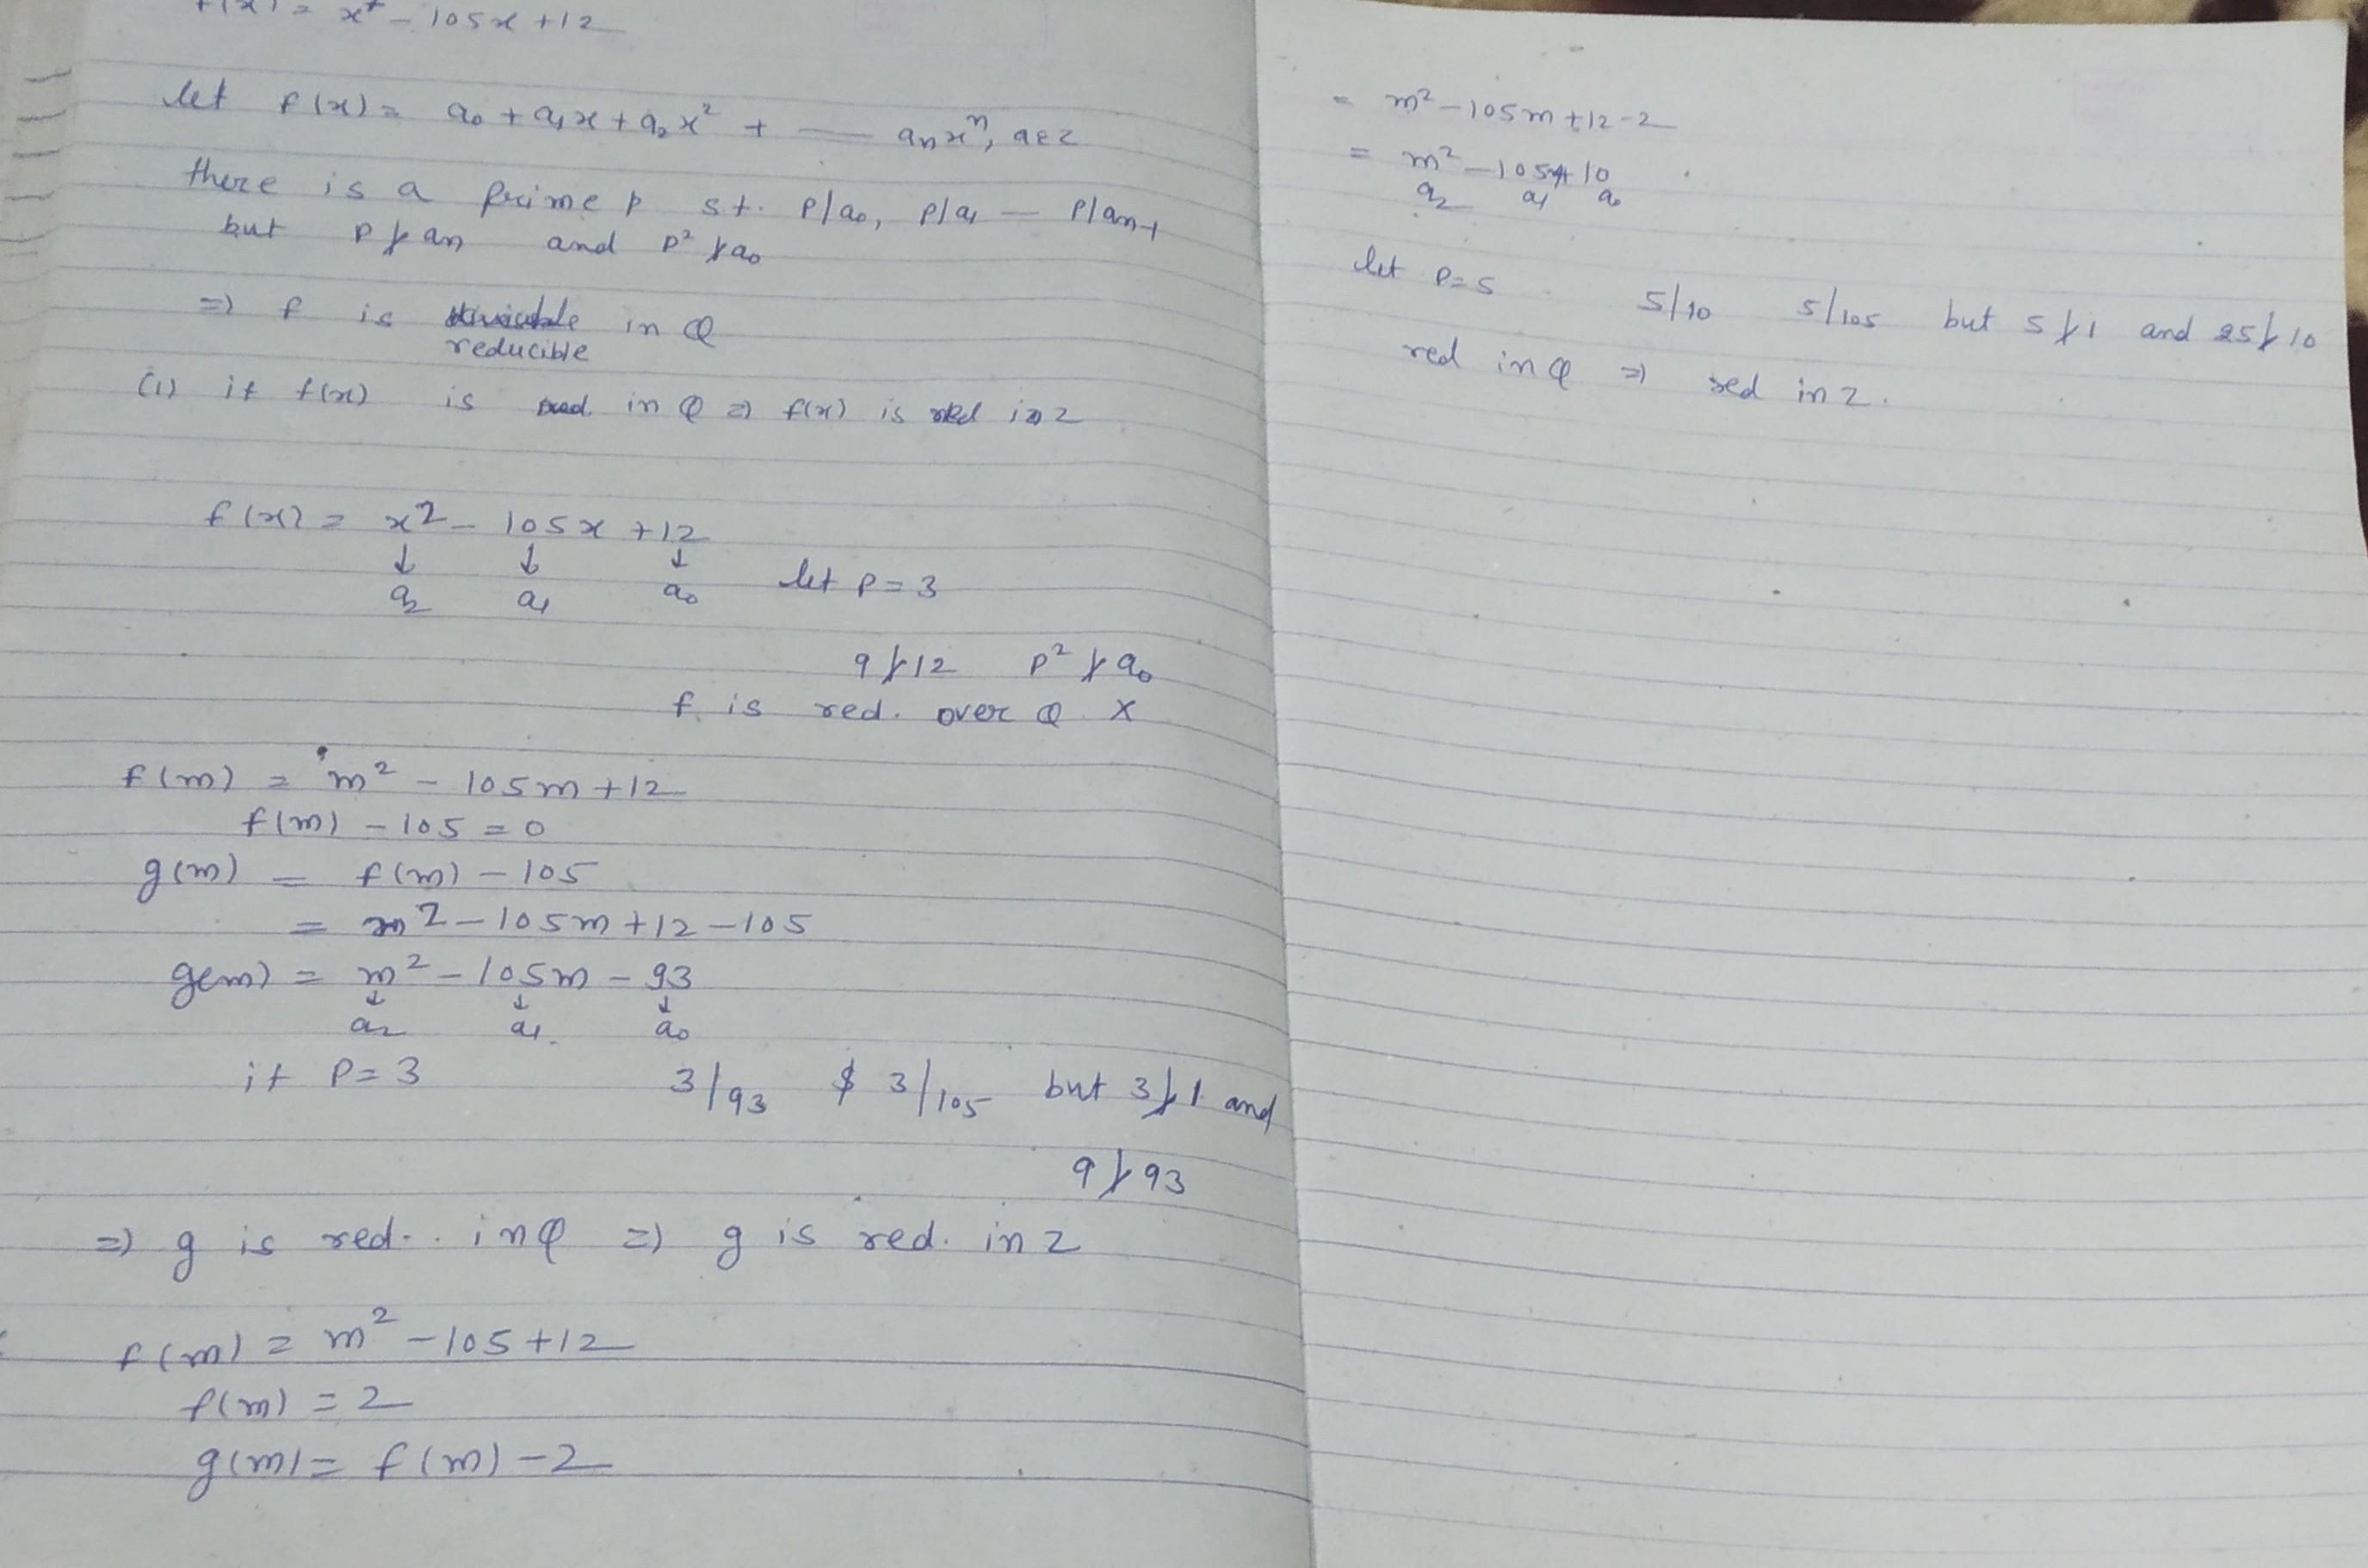 f(x) = x² - 105x + 12
let f(x) = a₀ + a₁x + a₂x² + — aₙxⁿ, a∈Z
there is a prime p s.t. P/a₀, P/a₁ — P/aₙ₋₁
but P∤aₙ and P²∤a₀
⇒ f is reducible in Q
(1) if f(x) is red in Q ⇒ f(x) is red in Z
f(x) = x² - 105x + 12
↓ ↓ ↓
a₂ a₁ a₀ let P = 3
9∤12 P²∤a₀
f is red. over Q X
f(m) = m² - 105m + 12
f(m) - 105 = 0
g(m) = f(m) - 105
= m² - 105m + 12 - 105
g(m) = m² - 105m - 93
↓ ↓ ↓
a₂ a₁. a₀
if P = 3 3/93 $ 3/105 but 3∤1 and
9∤93
⇒ g is red.. in Q ⇒ g is red. in Z
f(m) = m² - 105 + 12
f(m) = 2
g(m) = f(m) - 2
= m² - 105m + 12 - 2
= m² - 105m + 10
a₂ a₁ a₀
let P = 5 5/10 5/105 but 5∤1 and 25∤10
red in Q ⇒ red in Z.